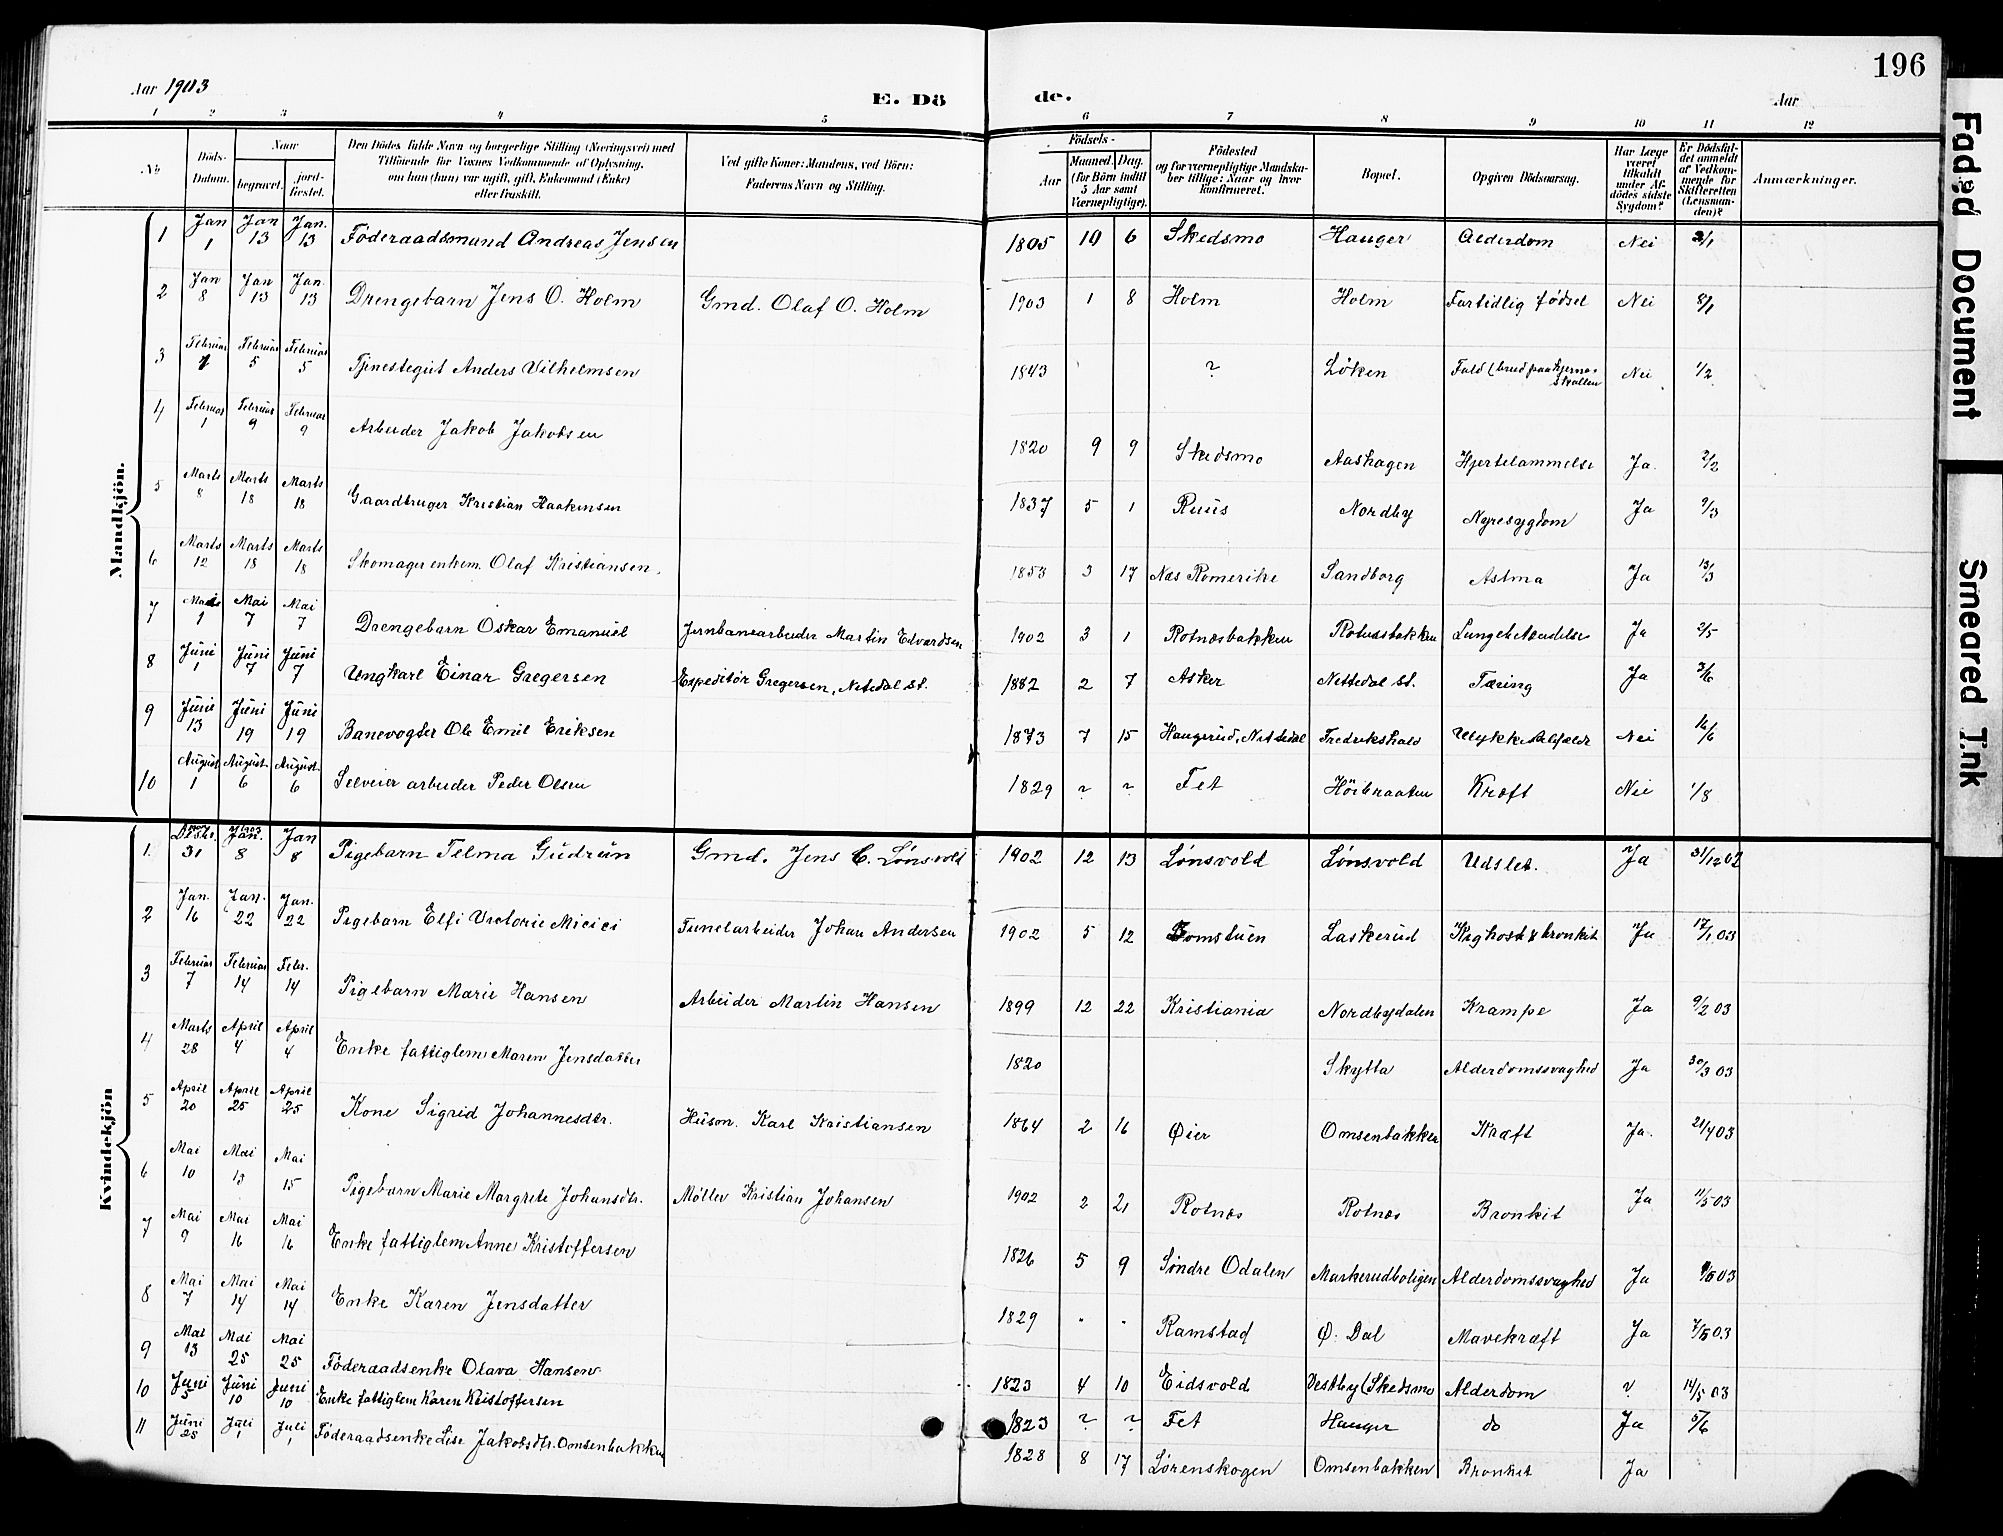 196
Aar 1903
E. Dö
de.
Aar
1 2 3 4 5 6 7 8 9 10 11 12
No
Döds-Datum.
Naar
begravet.
jord-fæstet.
Den Dödes fulde Navn og borgerlige Stilling (Næringsvei) med
Tilföiende for Voxnes Vedkommende af Oplysning,
om han (hun) var ugift, gift, Enkemand (Enke)
eller fraskilt.
Ved gifte Koner: Mandens, ved Börn:
Faderens Navn og Stilling.
Födsels-
Aar
Maaned. Dag.
(for Börn indtil
5 Aar samt
Værnepligtige).
Födested
og for værnepligtige Mandska-
ber tillige: Naar og hvor
konfirmeret.
Bopæl.
Opgiven Dödsaarsag.
Har Læge
været
tilkaldt
under Af-
dödes sidste
Sygdom?
Er Dödsfal-
det anmeldt
af Vedkom-
mende for
Skifteretten
(Lensman-
den)?
Anmærkninger.
Mandkjön.
1 Jan 1 Jan 13 Jan. 13 Föderaadsmand Andreas Jensen 1805 10 6 Skedsmo Hauger Alderdom Nei 2/1
2 Jan 8 Jan 13 Jan. 13 Drengebarn Jens O. Holm Gmd. Olaf O. Holm 1903 1 8 Holm Holm Fortidlig fødsel Nei 8/1
3 Februar 1 Februar 5 Februar 5 Tjenestegut Anders Vilhelmsen 1843 ? Löken Fald (brud paa hjerne-skallen Nei 1/2
4 Februar 1 Februar 9 Februar 9 Arbeider Jakob Jakobsen 1820 9 9 Skedsmo Aashagen Hjertelammelse Ja. 2/2
5 Marts 8 Marts 18 Marts 18 Gaardbruger Kristian Haakensen 1837 5 1 Ruus Nordby Nyresygdom Ja 9/3
6 Marts 12 Marts 18 Marts 18 Skomager enkem. Olaf Kristiansen. 1853 3 17 Næs Romerike Sandborg Astma Ja 13/3
7 1 Mai 7 Mai 7 Drengebarn Oskar Emanuel Jernbanearbeider Martin Edvardsen 1902 3 1 Rotnæsbakken Rotnæsbakken Lungebetændelse Ja 2/5
8 Juni 1 Juni 7 Juni 7 Ungkarl Einar Gregersen Expeditör Gregersen, Nitedal St. 1882 2 7 Asker Nittedal St. Tæring Ja 3/6
9 Juni 13 Juni 19 Juni 19 Banevogter Ole Emil Eriksen 1873 7 15 Haugerud, Nittedal Fredrikshald Ulykkestilfælde Nei 16/6
10 August 1 August. 6 August. 6 Selveier arbeider Peder Olsen 1829 ? ? Fet Höibraaten Kræft Nei 1/8
Kvindekjön
1. 31 1903 Jan. 8 Jan 8 Pigebarn Telma Gudrun Gmd. Jens C. Lönsvold 1902 12 13 Lönsvold Lönsvold Udslet. Ja 31/12 02
2 Jan. 16 Jan. 22 Jan. 22 Pigebarn Elfi Victorie Tunelarbeider Johan Andersen 1902 5 12 Laskerud Kighoste & bronkit Ja 17/1 03
3 Februar 7 Februar 14 Febr. 14 Pigebarn Marie Hansen Arbeider Martin Hansen 1899 12 22 Kristiania Nordbydalen Krampe Ja 9/2 03
4 Marts 28 April 4 April 4 Enke fattiglem Maren Jensdatter 1820 Skytta Alderdomssvaghed Ja 30/3 03
5 April 20 April 25 April 25 Kone Sigrid Johannesdtr. Husm. Karl Kristiansen 1864 2 16 Øier Omsenbakken Kræft Ja. 21/4 03
6 Mai 10 Mai 13 Mai 15 Pigebarn Marie Margrete Johansdtr. Møller Kristian Johansen 1902 2 21 Rotnæs Rotnæs Bronkit Ja 11/5 03
7 Mai 9 Mai 16 Mai 16 Enke fattiglem Anne Kristoffersen 1826 5 9 Söndre Odalen Markerudboligen Alderdomssvaghed Ja 9/5 03
8 Mai 7 Mai 14 Mai 14 Enke Karen Jensdatter 1829 Ramstad Ø. Dal Mavekræft Ja 7/5 03
9 Mai 13 Mai 25 Mai 25 Föderaadsenke Olava Hansen 1823 4 10 Eidsvold Vestby (Skedsmo Alderdom ? 14/5 03
10 Juni 5 Juni 10 Juni 10 Enke fattiglem Karen Kristoffersen 1823 ? ? Fet Hauger do Ja 5/6
11 Juni 25 Juli 1 Juli 1 Föderaadsenke Lise Jakobsdtr. Omsenbakken 1828 8 17 Lørenskogen Omsenbakken Bronkit Ja
Faded Document
Smeared Ink